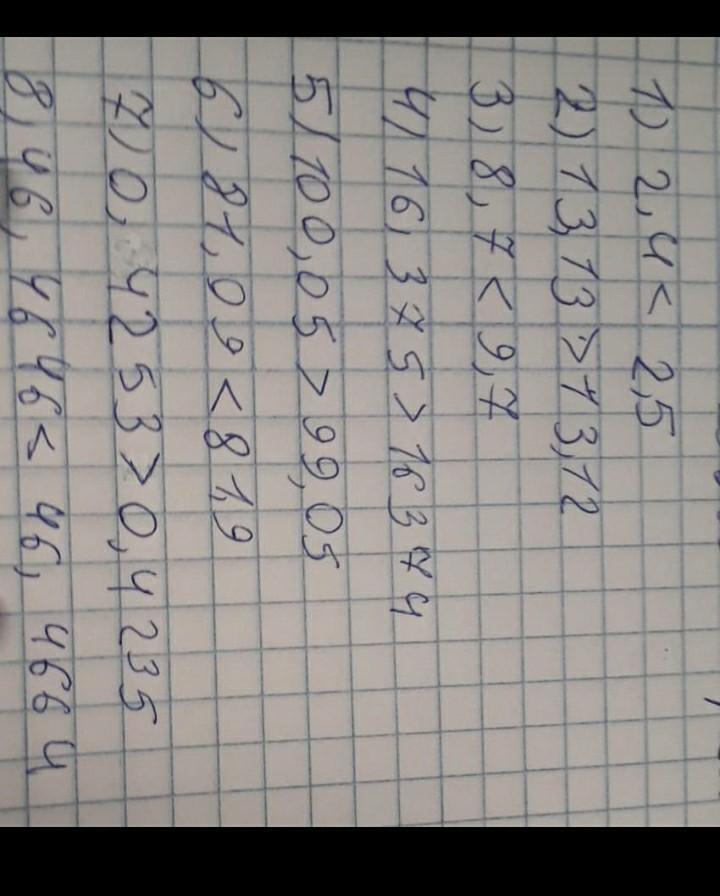 1) 2,4 < 2,5
2) 13,13 > 13,12
3) 8,7 < 9,7
4) 16,375 > 16374
5) 100,05 > 99,05
6) 81,09 < 81,9
7) 0,4253 > 0,4235
8) 46,4646 < 46,4664